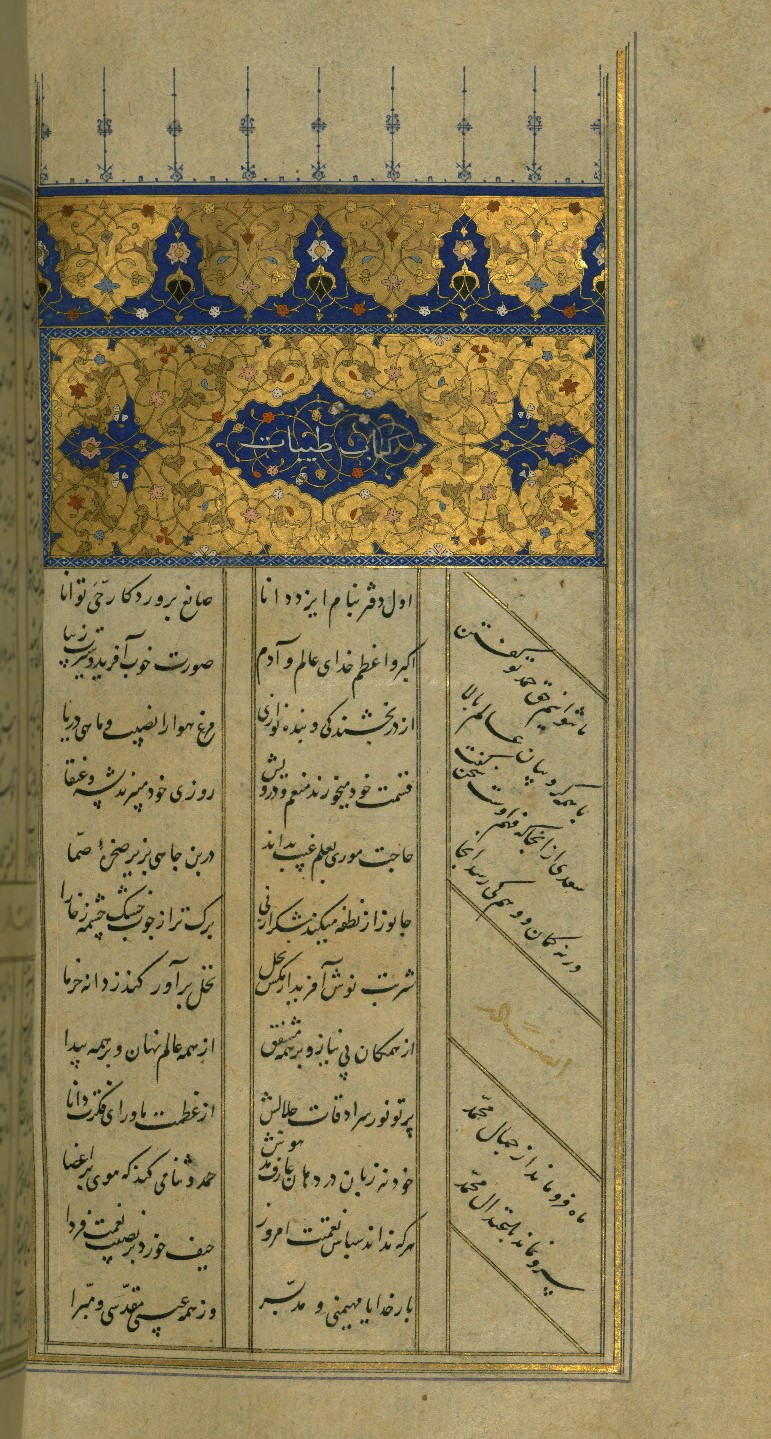 کتاب طیبات
اول دفتر بنام ایزد دانا
صانع پروردکار حی توانا
اکبر و اعظم خدای عالم و آدم
صورت خوب آفرید و سیرت زیبا
از در بخشندکی و بنده نوازی
مرغ هوا را نصیب و ماهی دریا
قسمت خود میخورند منعم و درویش
روزی خود میبرند پشه و عنقا
حاجت موری بعلم غیب بداند
دربن چاهی بزیر صخرهٔ صما
جانور از نطفه میکند شکر از نی
برک تر از چوب خشک و چشمه ز خارا
شربت نوش آفرید از مکس نحل
نخل برآور کند ز دانه خرما
از همکان بی نیاز و بر همه مشفق
از همه عالم نهان و بر همه پیدا
پرتو نور سرادقات جلالش
از عظمت ماورای فکرت دانا
خود نه زبان در دهان عارف مدهوش
حمد و ثنای کند که موی بر اعضا
هرکه نداند سپاس نعمت امروز
حیف خورد بر نصیب نعمت فردا
بار خدایا مهیمنی و مدبر
وز همه عیبی مقدسی و مبرا
ما نتوانیم حق حمد تو کفتن
با همه کروبیان عالم بالا
سعدی از انجا که فهم اوست سخن کفت
ورنه کمان و وهم کی رسد انجا
ماه فرو ماند از جمال محمد
سرو نماند باعتدال محمد